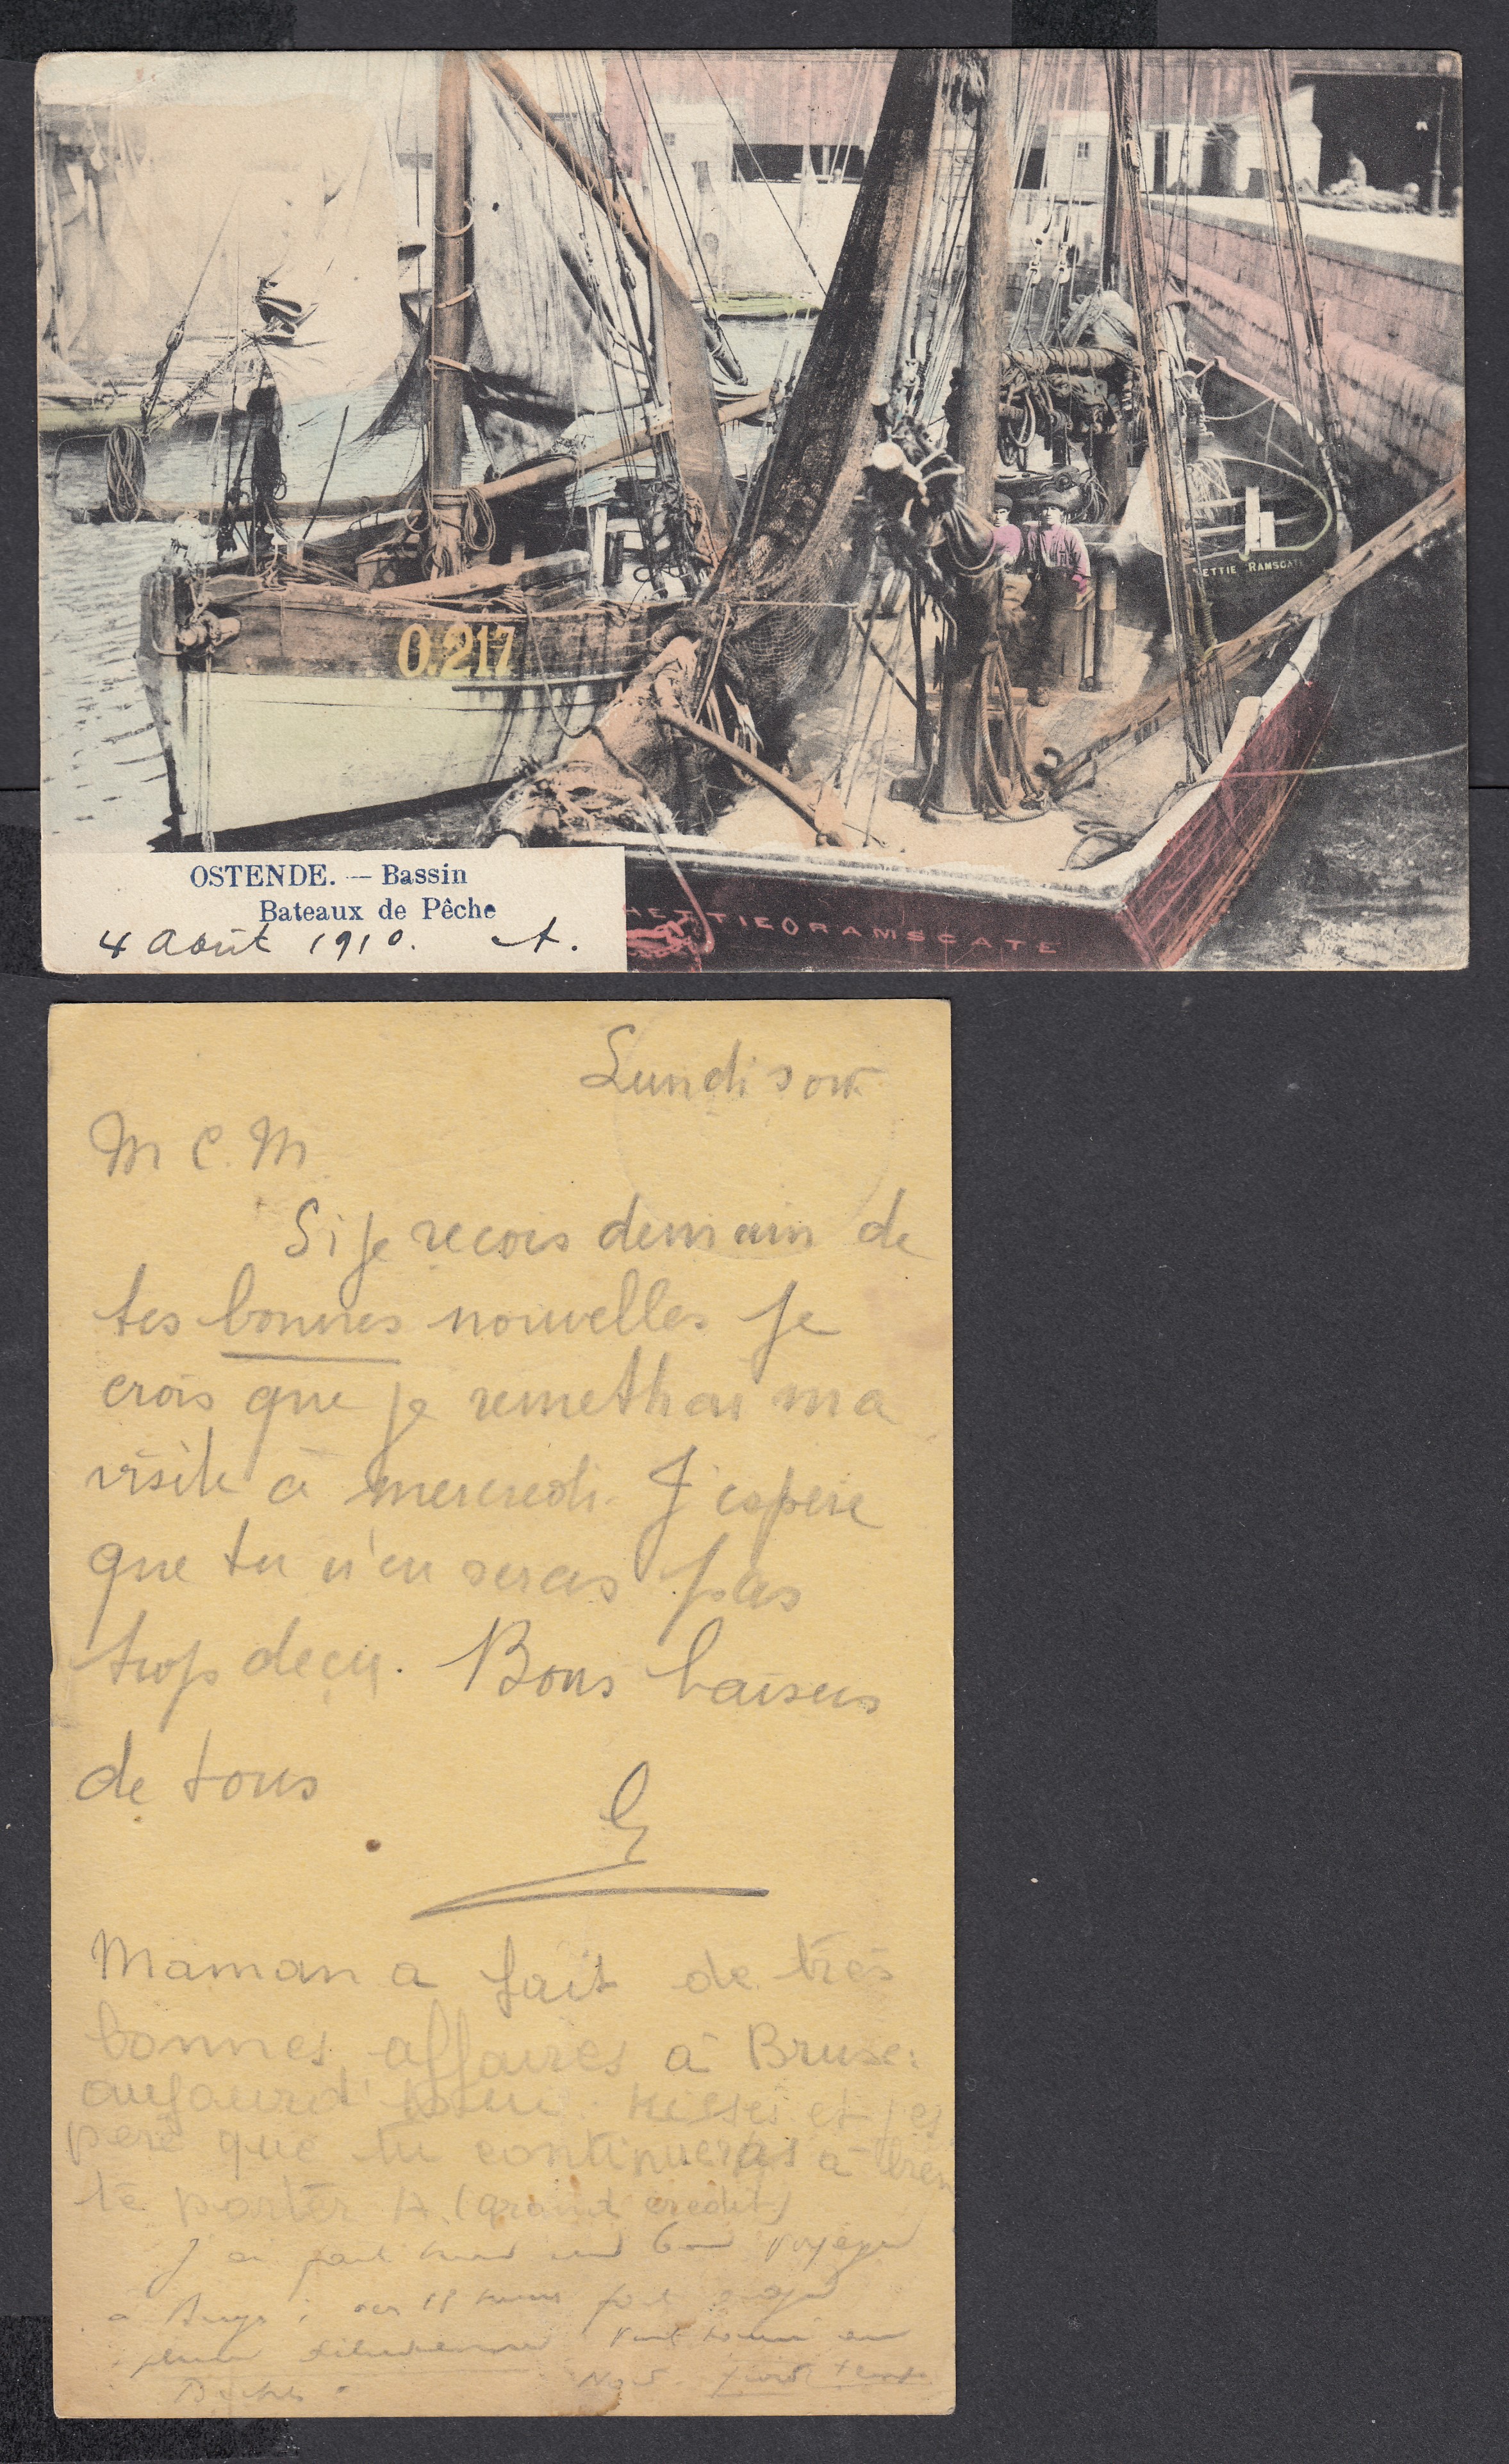 O.217
ETTIE RAMSGAT
HETTIE O RAMSGATE
OSTENDE. — Bassin
Bateaux de Pêche
4 Août 1910. A.
Lundi soir
M C. M
Si je reçois demain de
tes bonnes nouvelles je
crois que je remettrai ma
visite à mercredi. J'espère
que tu n'en seras pas
trop deçu. Bons baisers
de tous
Maman a fait de très
bonnes affaires à Brux:
aujourd'hui. et j'es
père que tu continueras à bien
te porter A. (grand credit)
J'ai fait bon voyage
à